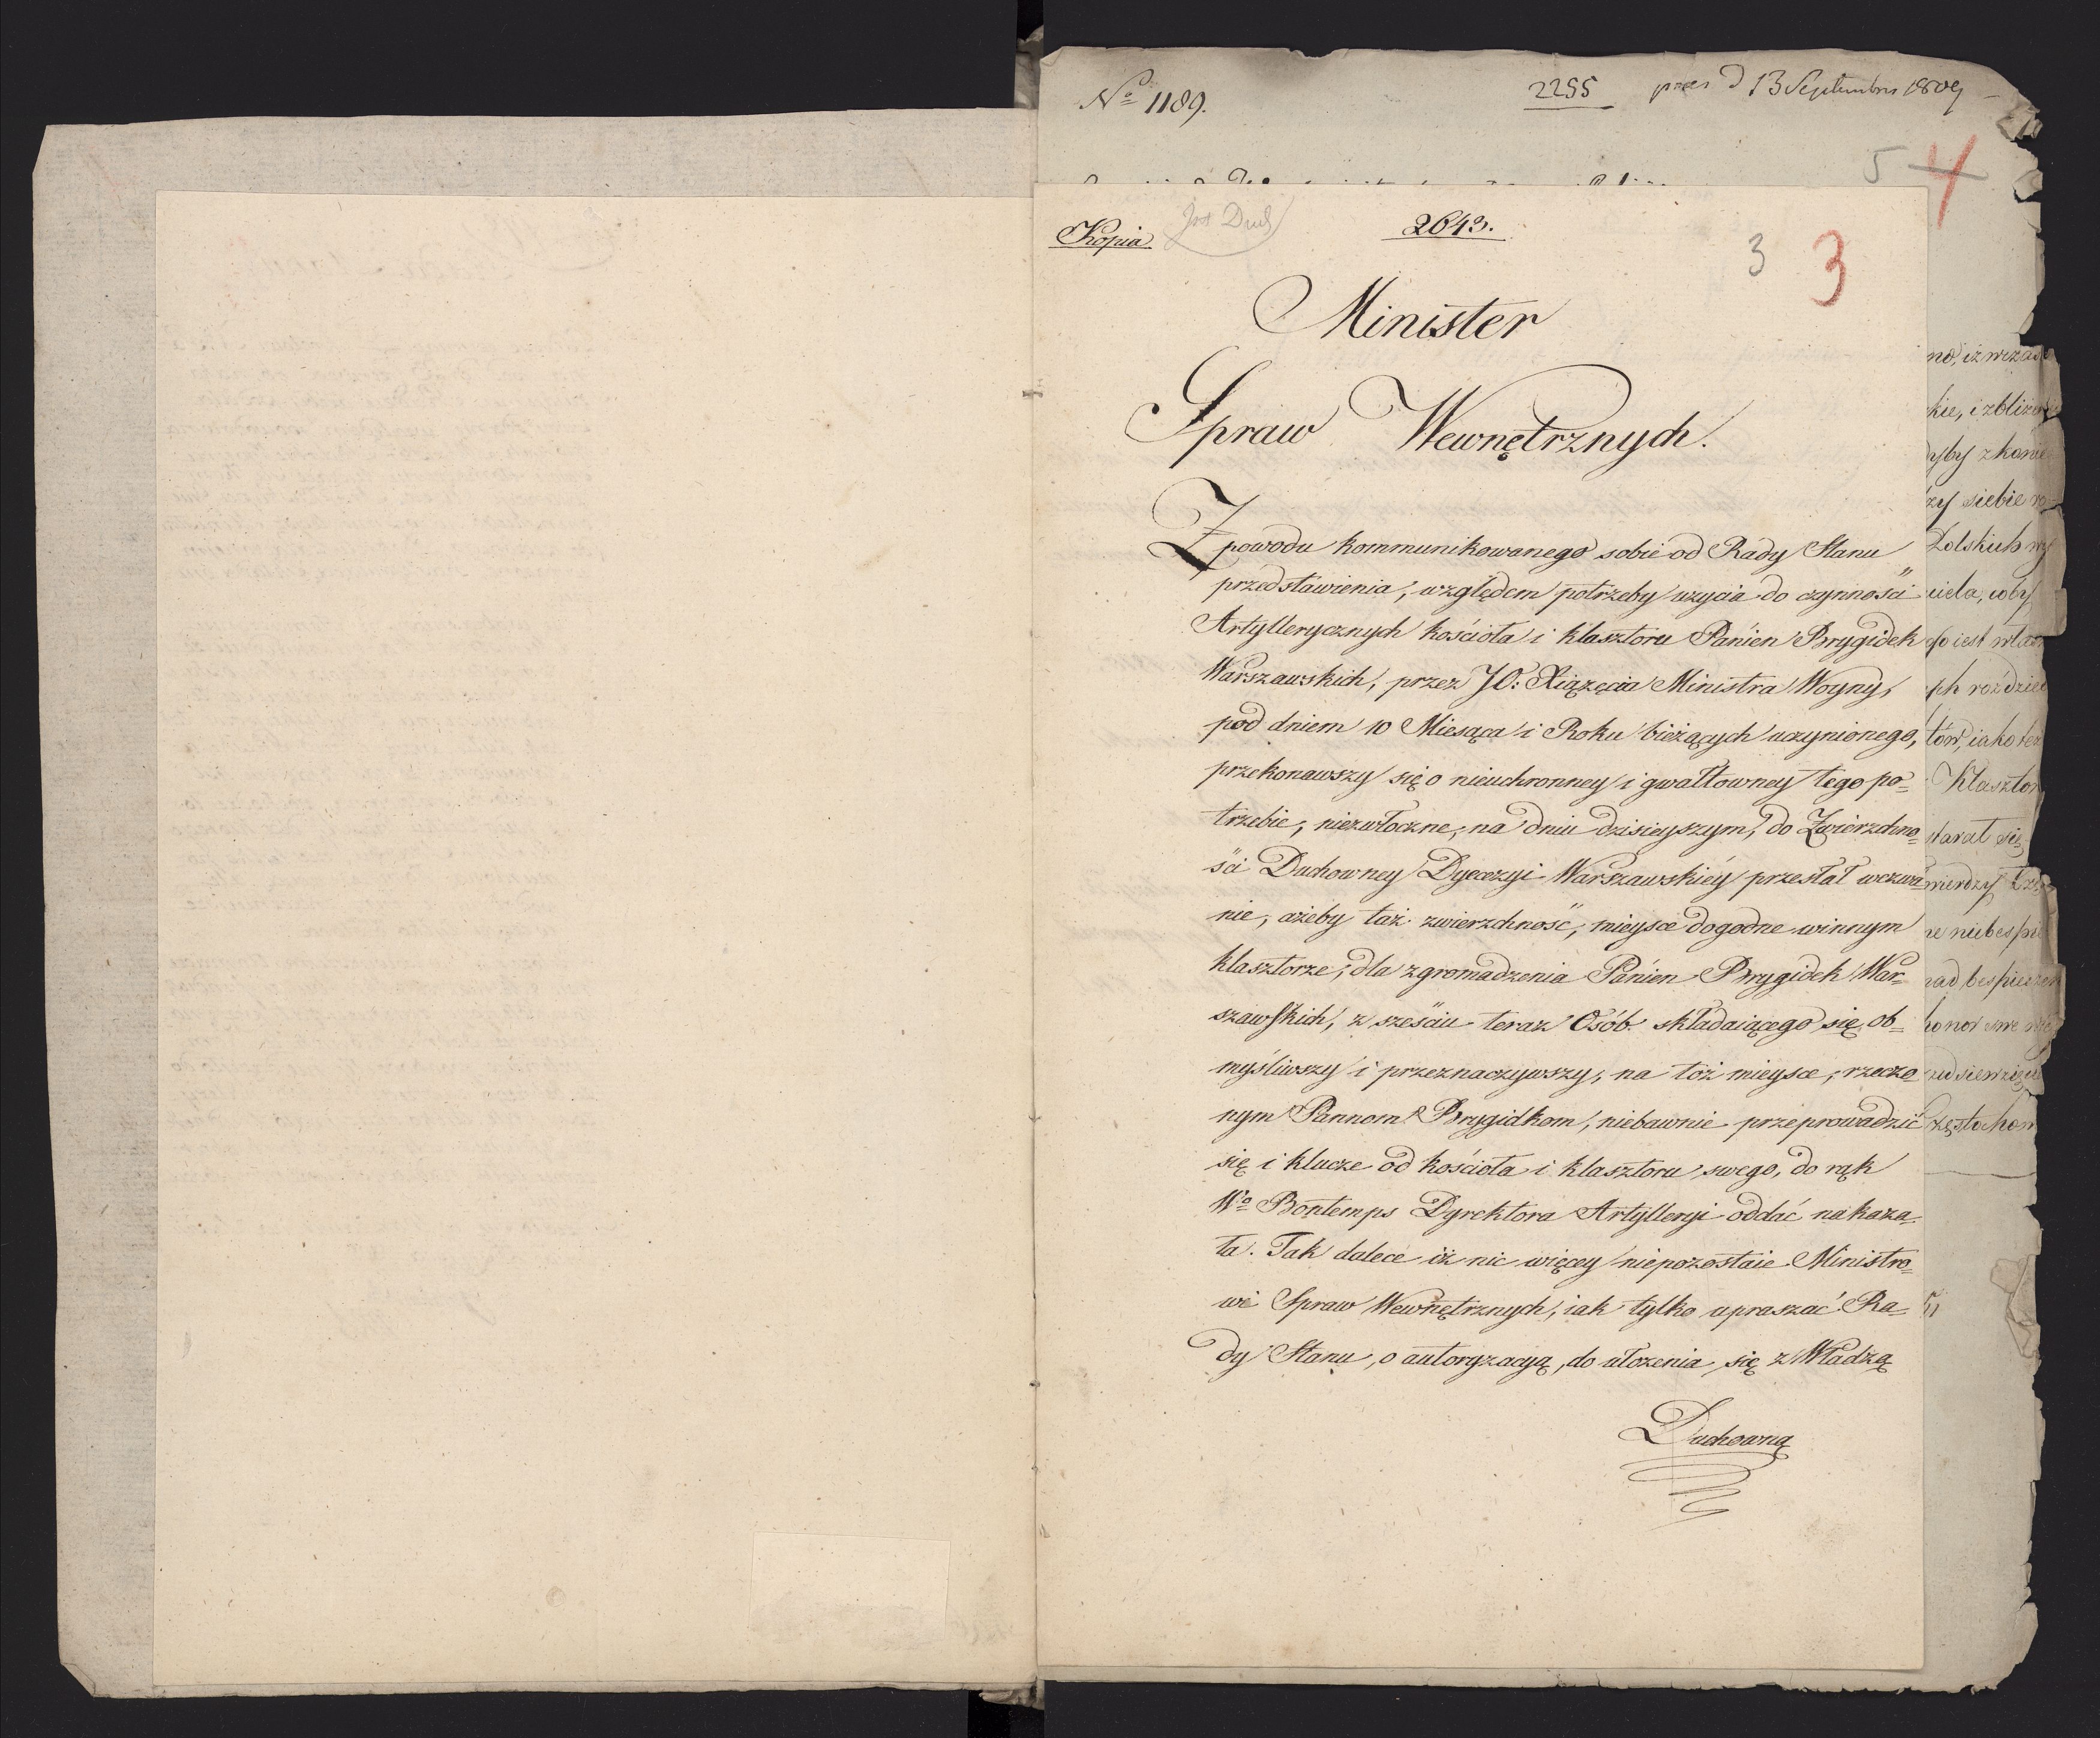 No 1189.
2255 praes d 13 Septembris 1809
5 4
Kopia
2643.
3 3
Minister
Spraw Wewnętrznych.
Z powodu kommunikowanego sobie od Rady Stanu
przedstawienia, względem potrzeby użycia do czynności
Artyllerycznych kościoła i klasztoru Panien Brygidek
Warszawskich, przez JO: Xiążęcia Ministra Woyny,
pod dniem 10 Miesąca i Roku bieżących uczynionego,
przekonawszy się o nieuchronney i gwałtowney tego po=
trzebie, niezwłoczne, na dniu dzisieyszym, do Zwierzchno=
ści Duchowney Dyecezyi Warszawskiéy przesłał wezwa=
nie, ażeby taż zwierzchność, mieysce dogodne winnym
klasztorze, dla zgromadzenia Panien Brygidek War=
szawskich, z sześciu teraz Osób składaiącego się, ob=
myśliwszy i przeznaczywszy, na toż mieysce, rzeczo
nym Pannom Brygidkom, niebawnie przeprowadzić
się i klucze od kościoła i klasztoru swego, do rąk
Wo Bontemps Dyrektora Artylleryi oddać nakaza=
ła. Tak dalece iż nic więcey niepozostaie Ministro=
wi Spraw Wewnętrznych, iak tylko upraszać Ra=
dy Stanu, o autoryzacyą, do ułożenia się z Władzą
Duchowną
kie, i zbliż
zy siebie
Polskich
iako
Klasztor
starał się